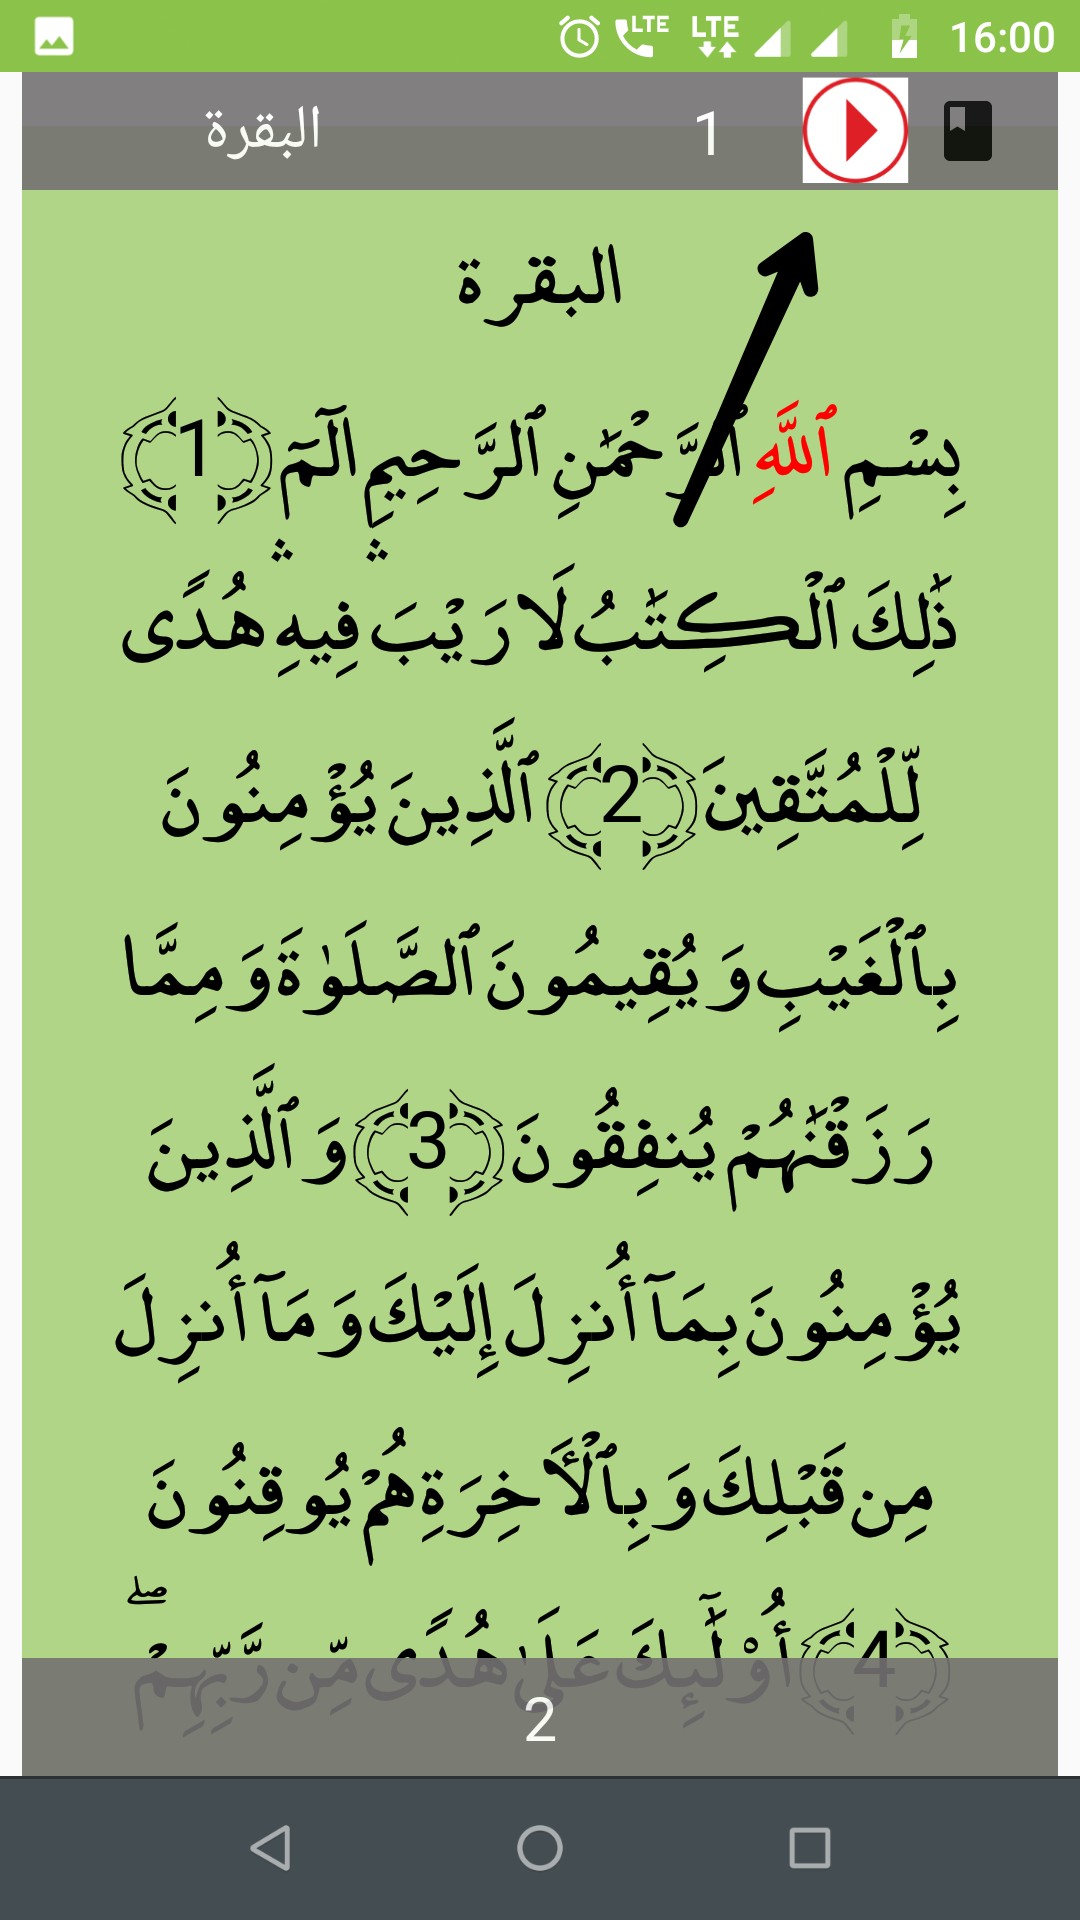 LTE LTE 16:00
البقرة 1
البقرة
بِسْمِ ٱللَّهِ ٱلرَّحْمَٰنِ ٱلرَّحِيمِ الٓمٓ 1
ذَٰلِكَ ٱلْكِتَٰبُ لَا رَيْبَ ۛ فِيهِ ۛ هُدًى
لِّلْمُتَّقِينَ 2 ٱلَّذِينَ يُؤْمِنُونَ
بِٱلْغَيْبِ وَيُقِيمُونَ ٱلصَّلَوٰةَ وَمِمَّا
رَزَقْنَٰهُمْ يُنفِقُونَ 3 وَٱلَّذِينَ
يُؤْمِنُونَ بِمَآ أُنزِلَ إِلَيْكَ وَمَآ أُنزِلَ
مِن قَبْلِكَ وَبِٱلْأَخِرَةِ هُمْ يُوقِنُونَ
4 أُوْلَٰٓئِكَ عَلَىٰ هُدًى مِّن رَّبِّهِمْ ۖ
2